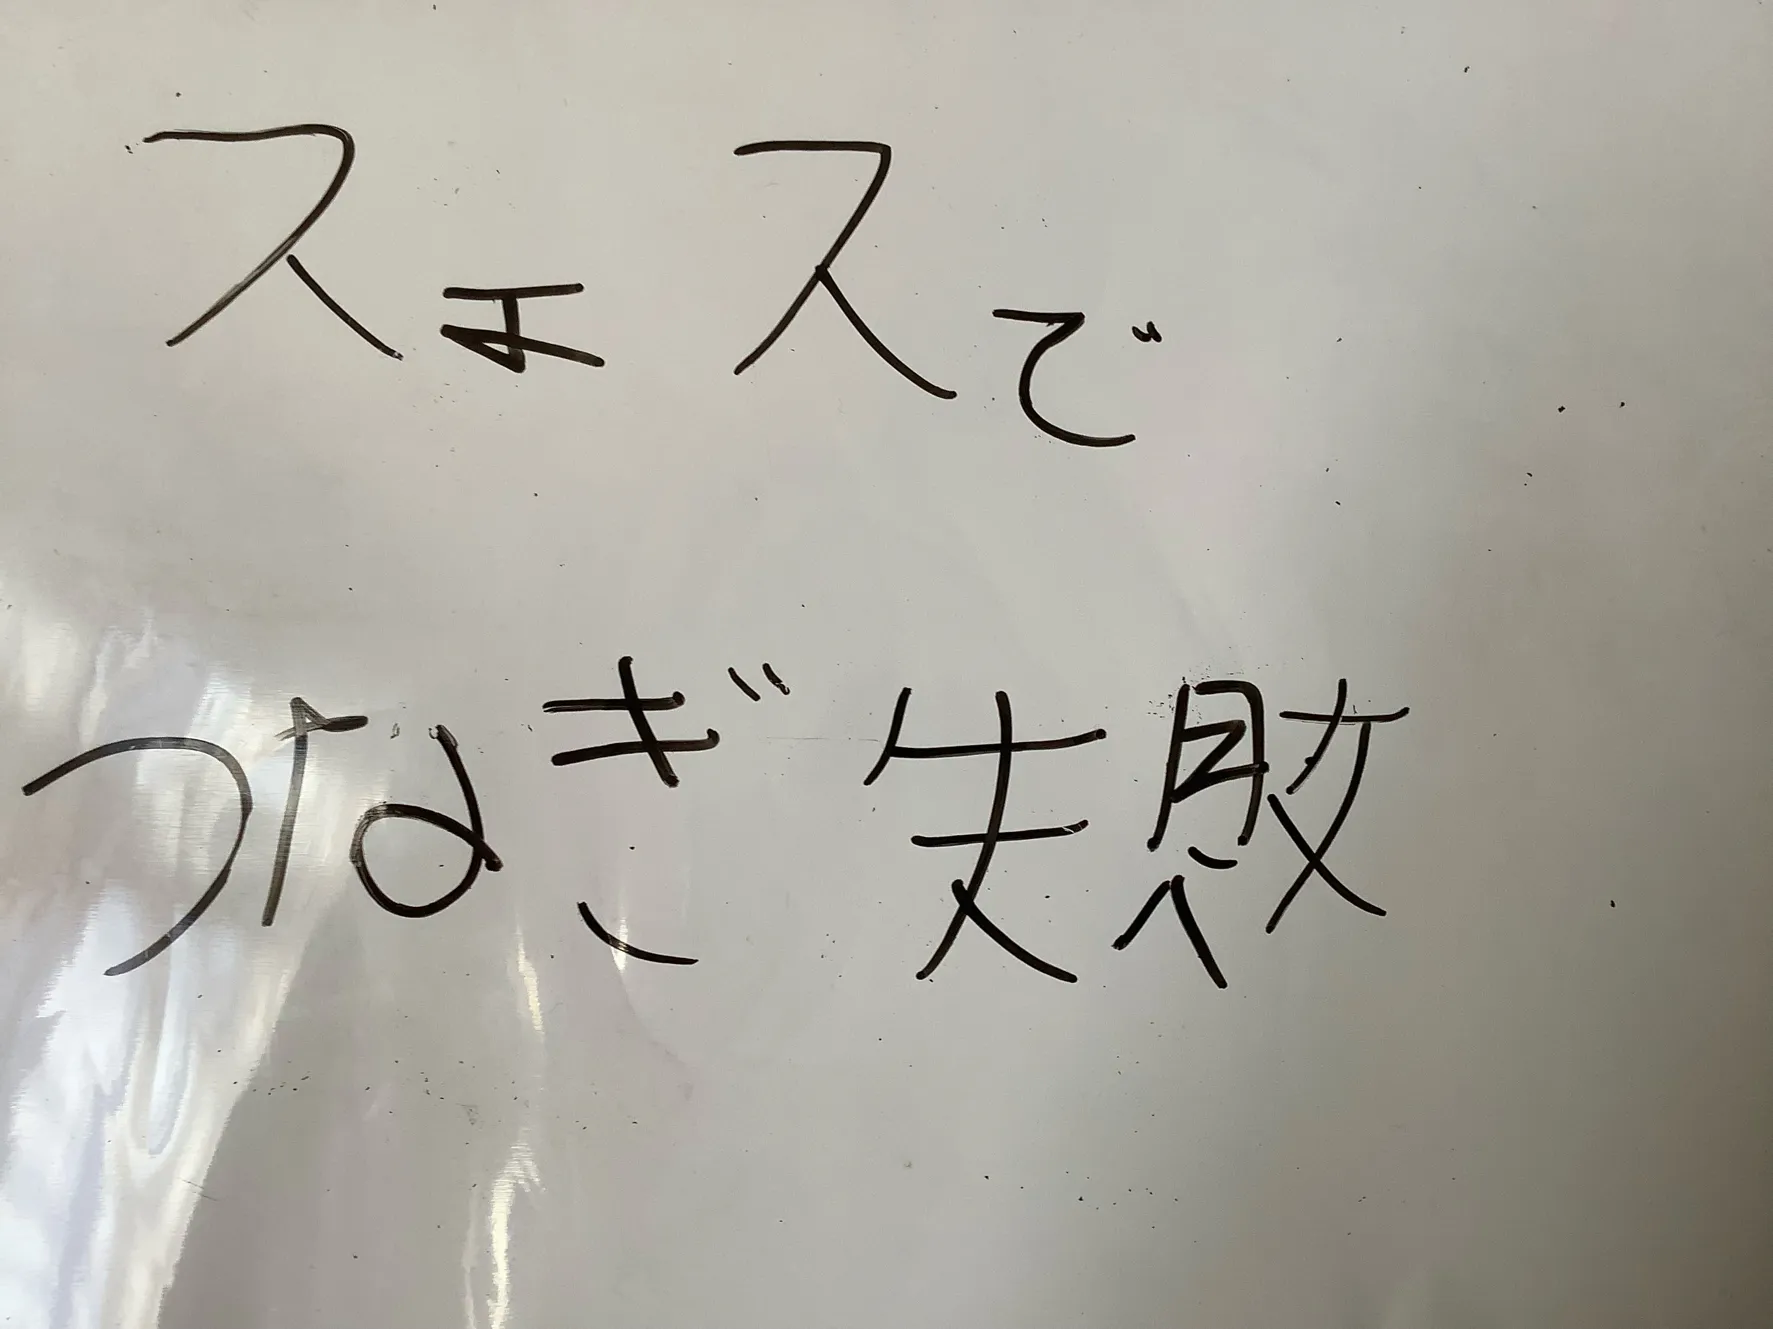 スエスで
つなぎ失敗